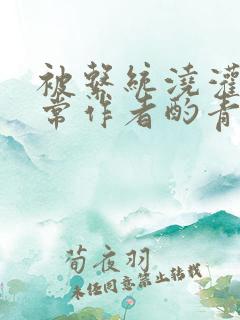 被繫統澆灌
常作者酌青
荀夜羽
未经同意禁止转载